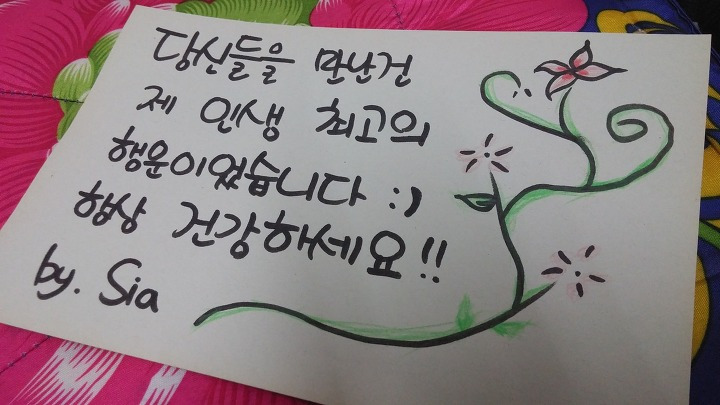 당신들을 만난건
제 인생 최고의
행운이었습니다 :)
항상 건강하세요!!
by. Sia